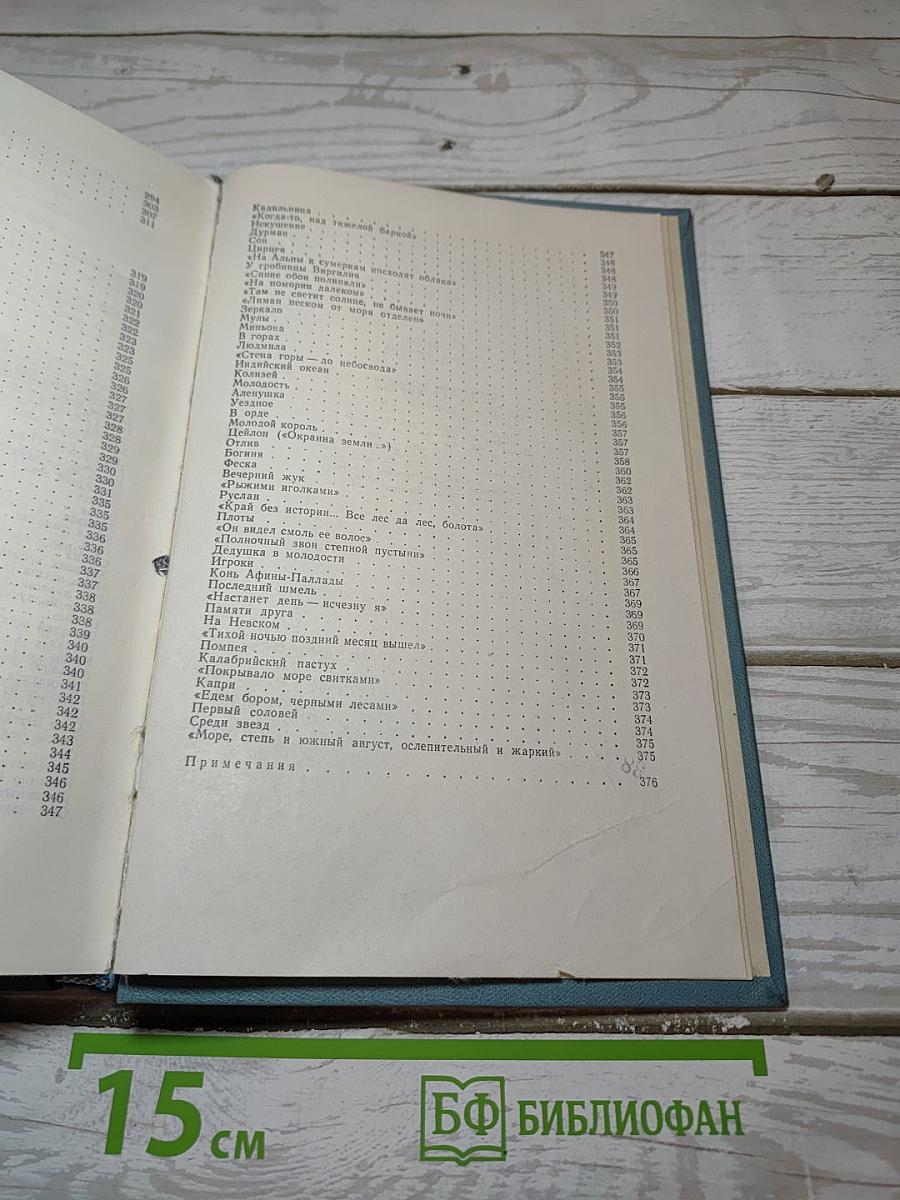 294
303
307
311
319
319
320
320
321
322
322
323
323
325
325
326
326
327
327
327
328
328
329
329
330
330
331
335
335
335
336
336
336
337
337
338
338
338
339
340
340
340
341
342
342
342
343
344
345
346
346
347
Кадильница . . . 347
«Когда-то, над тяжелой баркой» . . . 348
Искушение . . . 348
Дурман . . . 348
Сон . . . 349
Цирцея . . . 349
«На Альпы к сумеркам нисходят облака» . . . 350
У гробницы Виргилия . . . 350
«Синие обои полиняли» . . . 351
«На поморье далеком» . . . 351
«Там не светит солнце, не бывает ночи» . . . 351
«Лиман песком от моря отделен» . . . 352
Зеркало . . . 353
Мулы . . . 353
Миньона . . . 354
В горах . . . 354
Людмила . . . 355
«Стена горы — до небосвода» . . . 355
Индийский океан . . . 355
Колизей . . . 356
Молодость . . . 356
Аленушка . . . 357
Уездное . . . 357
В орде . . . 357
Молодой король . . . 358
Цейлон («Окраина земли...») . . . 360
Отлив . . . 362
Богиня . . . 362
Феска . . . 363
Вечерний жук . . . 363
«Рыжими иголками» . . . 364
Руслан . . . 364
«Край без истории... Все лес да лес, болота» . . . 365
Плоты . . . 365
«Он видел смоль ее волос» . . . 365
«Полночный звон степной пустыни» . . . 366
Дедушка в молодости . . . 367
Игроки . . . 367
Конь Афины-Паллады . . . 369
Последний шмель . . . 369
«Настанет день — исчезну я» . . . 369
Памяти друга . . . 370
На Невском . . . 371
«Тихой ночью поздний месяц вышел» . . . 371
Помпея . . . 372
Калабрийский пастух . . . 372
«Покрывало море свитками» . . . 373
Капри . . . 373
«Едем бором, черными лесами» . . . 374
Первый соловей . . . 374
Среди звезд . . . 375
«Море, степь и южный август, ослепительный и жаркий» . . . 375
Примечания . . . 376
88
15 см
БФ БИБЛИОФАН